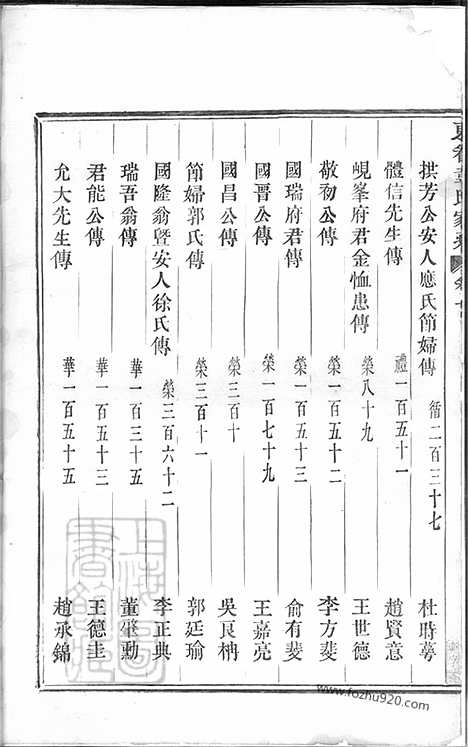 拱芳公安人應氏節婦傳 循二百三十七 杜時萼
體信先生傳 禮一百五十一 趙賢意
峴峯府君金恤患傳 榮八十九 王世德
敬初公傳 榮一百五十二 李方蓁
國瑞府君傳 榮一百五十三 俞有斐
國晉公傳 榮一百七十九 王嘉亮
國昌公傳 榮三百十 吳良枏
節婦郭氏傳 榮三百十一 郭廷瑜
國隆翁暨安人徐氏傳 榮三百六十二 李正典
瑞吾翁傳 華一百三十五 董肇勳
君能公傳 華一百五十三 王德圭
允大先生傳 華一百五十五 趙承錦
上海圖書館藏
www.fozhu920.com